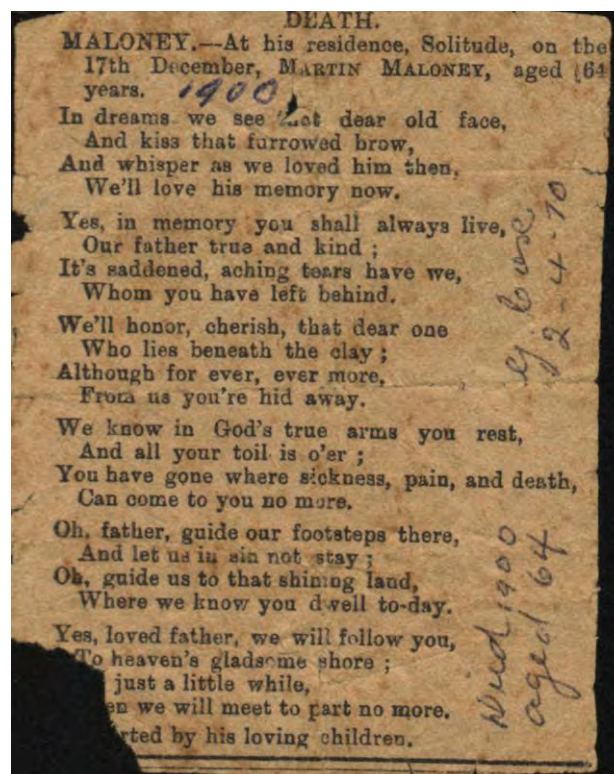 DEATH.
MALONEY.—At his residence, Solitude, on the
17th December, MARTIN MALONEY, aged 64
years. 1900
In dreams we see that dear old face,
And kiss that furrowed brow,
And whisper as we loved him then,
We'll love his memory now.
Yes, in memory you shall always live,
Our father true and kind ;
It's saddened, aching tears have we,
Whom you have left behind.
We'll honor, cherish, that dear one
Who lies beneath the clay ;
Although for ever, ever more,
From us you're hid away.
We know in God's true arms you rest,
And all your toil is o'er ;
You have gone where sickness, pain, and death,
Can come to you no more.
Oh, father, guide our footsteps there,
And let us in sin not stay ;
Oh, guide us to that shining land,
Where we know you dwell to-day.
Yes, loved father, we will follow you,
To heaven's gladsome shore ;
just a little while,
en we will meet to part no more.
rted by his loving children.
2-4-70
Died 1900
aged 64